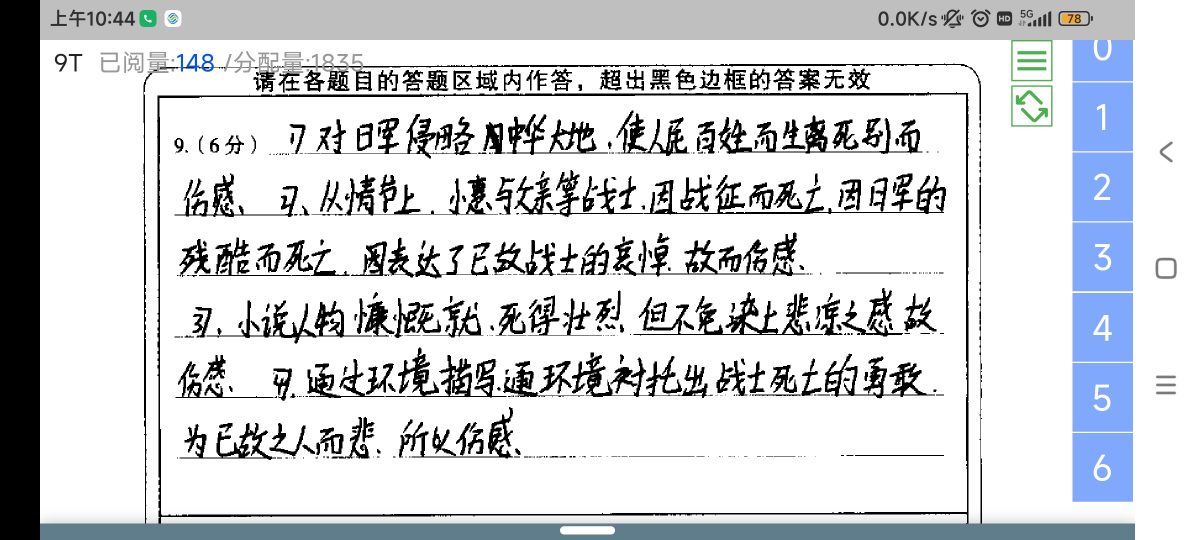 上午10:44
0.0K/s HD 5G 78
9T 已阅量:148 /分配量:1835
请在各题目的答题区域内作答，超出黑色边框的答案无效
9.（6分） 1) 对日军侵略中华大地、使人民百姓而生离死别而
伤感、 2)、从情节上、小惠与父亲等战士、因战征而死亡、因日军的
残酷而死亡、因表达了已故战士的哀悼、故而伤感、
3)、小说人物慷慨就、死得壮烈、但不免染上悲凉之感故
伤感、 4)、通过环境描写、通环境衬托出战士死亡的勇敢、
为已故之人而悲、所以伤感、
0
1
2
3
4
5
6